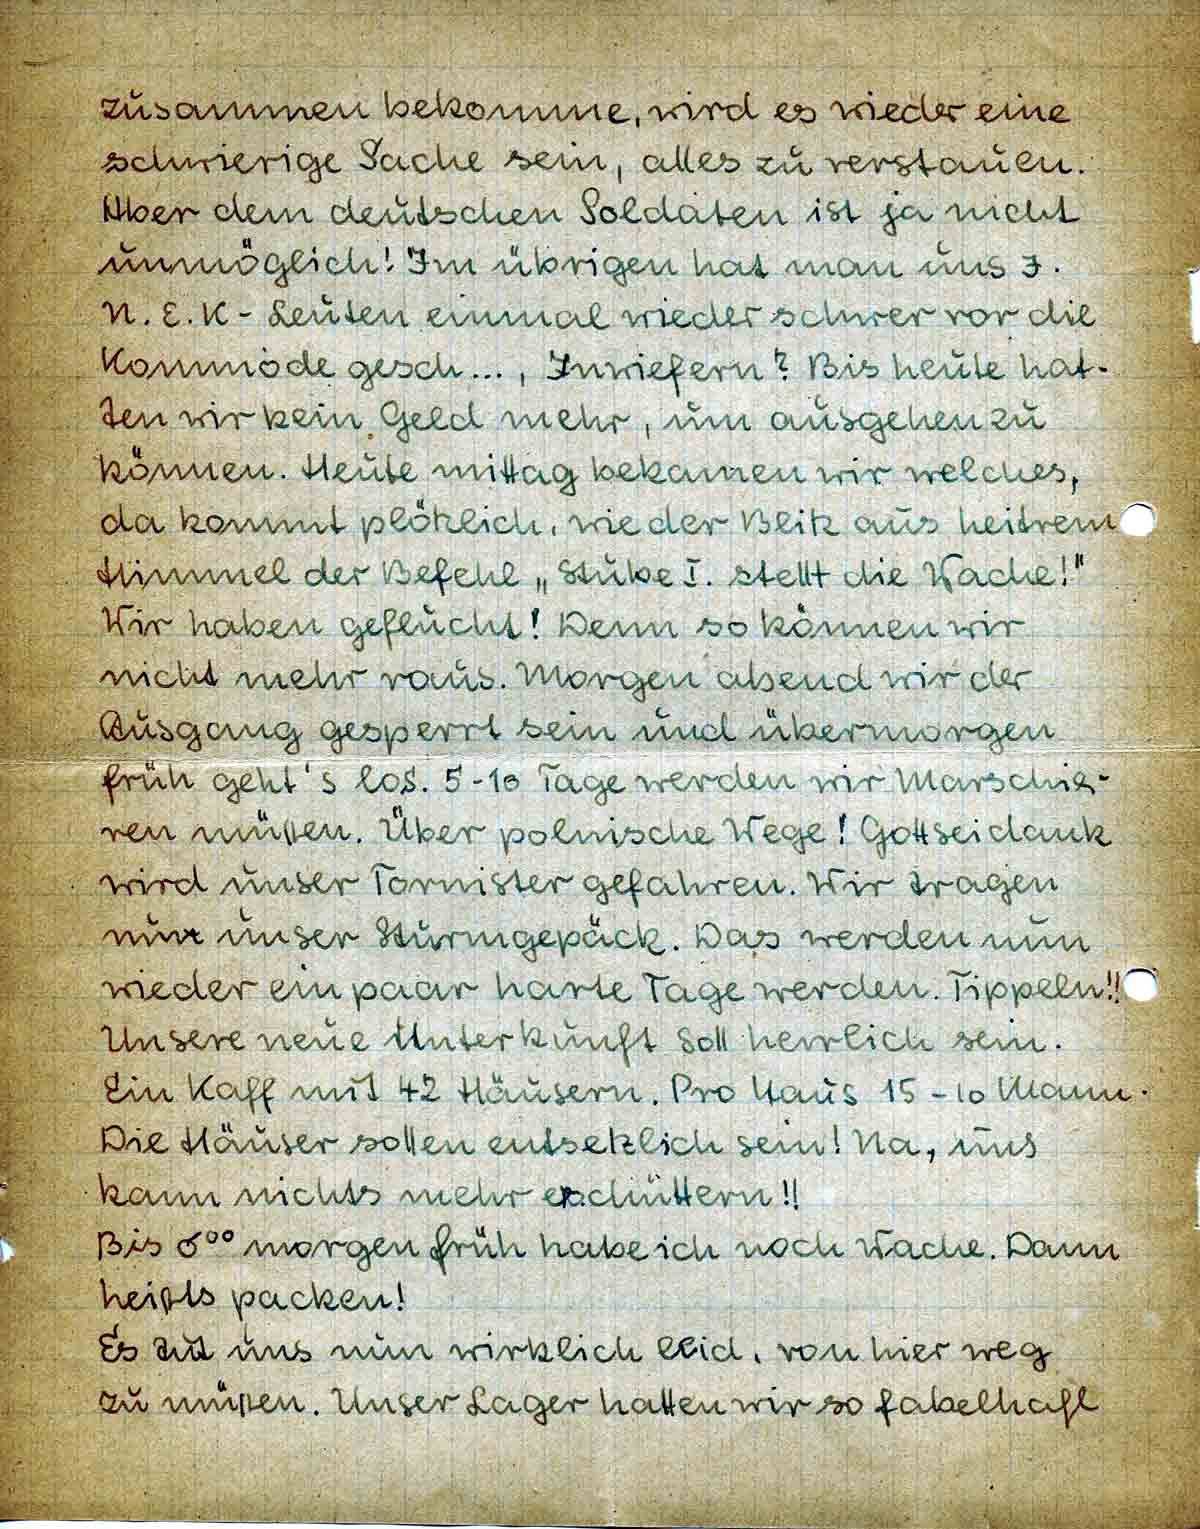 zusammen bekomme, wird es wieder eine
schwierige Sache sein, alles zu verstauen.
Aber dem deutschen Soldaten ist ja nicht
unmöglich! Im übrigen hat man uns J.
N.E.K-Leuten einmal wieder schwer vor die
Kommode gesch..., Inwiefern? Bis heute hat-
ten wir kein Geld mehr, um ausgehen zu
können. Heute mittag bekamen wir welches,
da kommt plötzlich, wie der Blitz aus heitrem
Himmel der Befehl „Stube I. stellt die Wache!"
Wir haben geflucht! Denn so können wir
nicht mehr raus. Morgen abend wir der
Ausgang gesperrt sein und übermorgen
früh geht's los. 5-10 Tage werden wir Marschie-
ren müßen. Über polnische Wege! Gottseidank
wird unser Tornister gefahren. Wir tragen
nur unser Sturmgepäck. Das werden nun
wieder ein paar harte Tage werden. Tippeln!!
Unsere neue Unterkunft soll herrlich sein.
Ein Kaff mit 42 Häusern. Pro Haus 15-10 Mann.
Die Häuser sollen entsetzlich sein! Na, uns
kann nichts mehr erschüttern!!
Bis 6⁰⁰ morgen früh habe ich noch Wache. Dann
heißts packen!
Es tut uns nun wirklich leid, von hier weg
zu müßen. Unser Lager hatten wir so fabelhaft